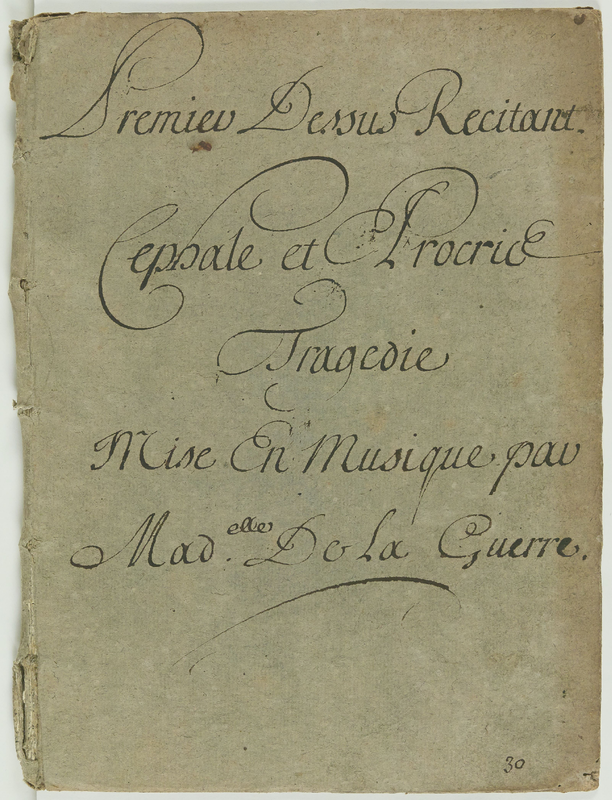 Premier Dessus Recitant.
Cephale et Procris
Tragedie
Mise En Musique par
Mad.elle De la Guerre.
30